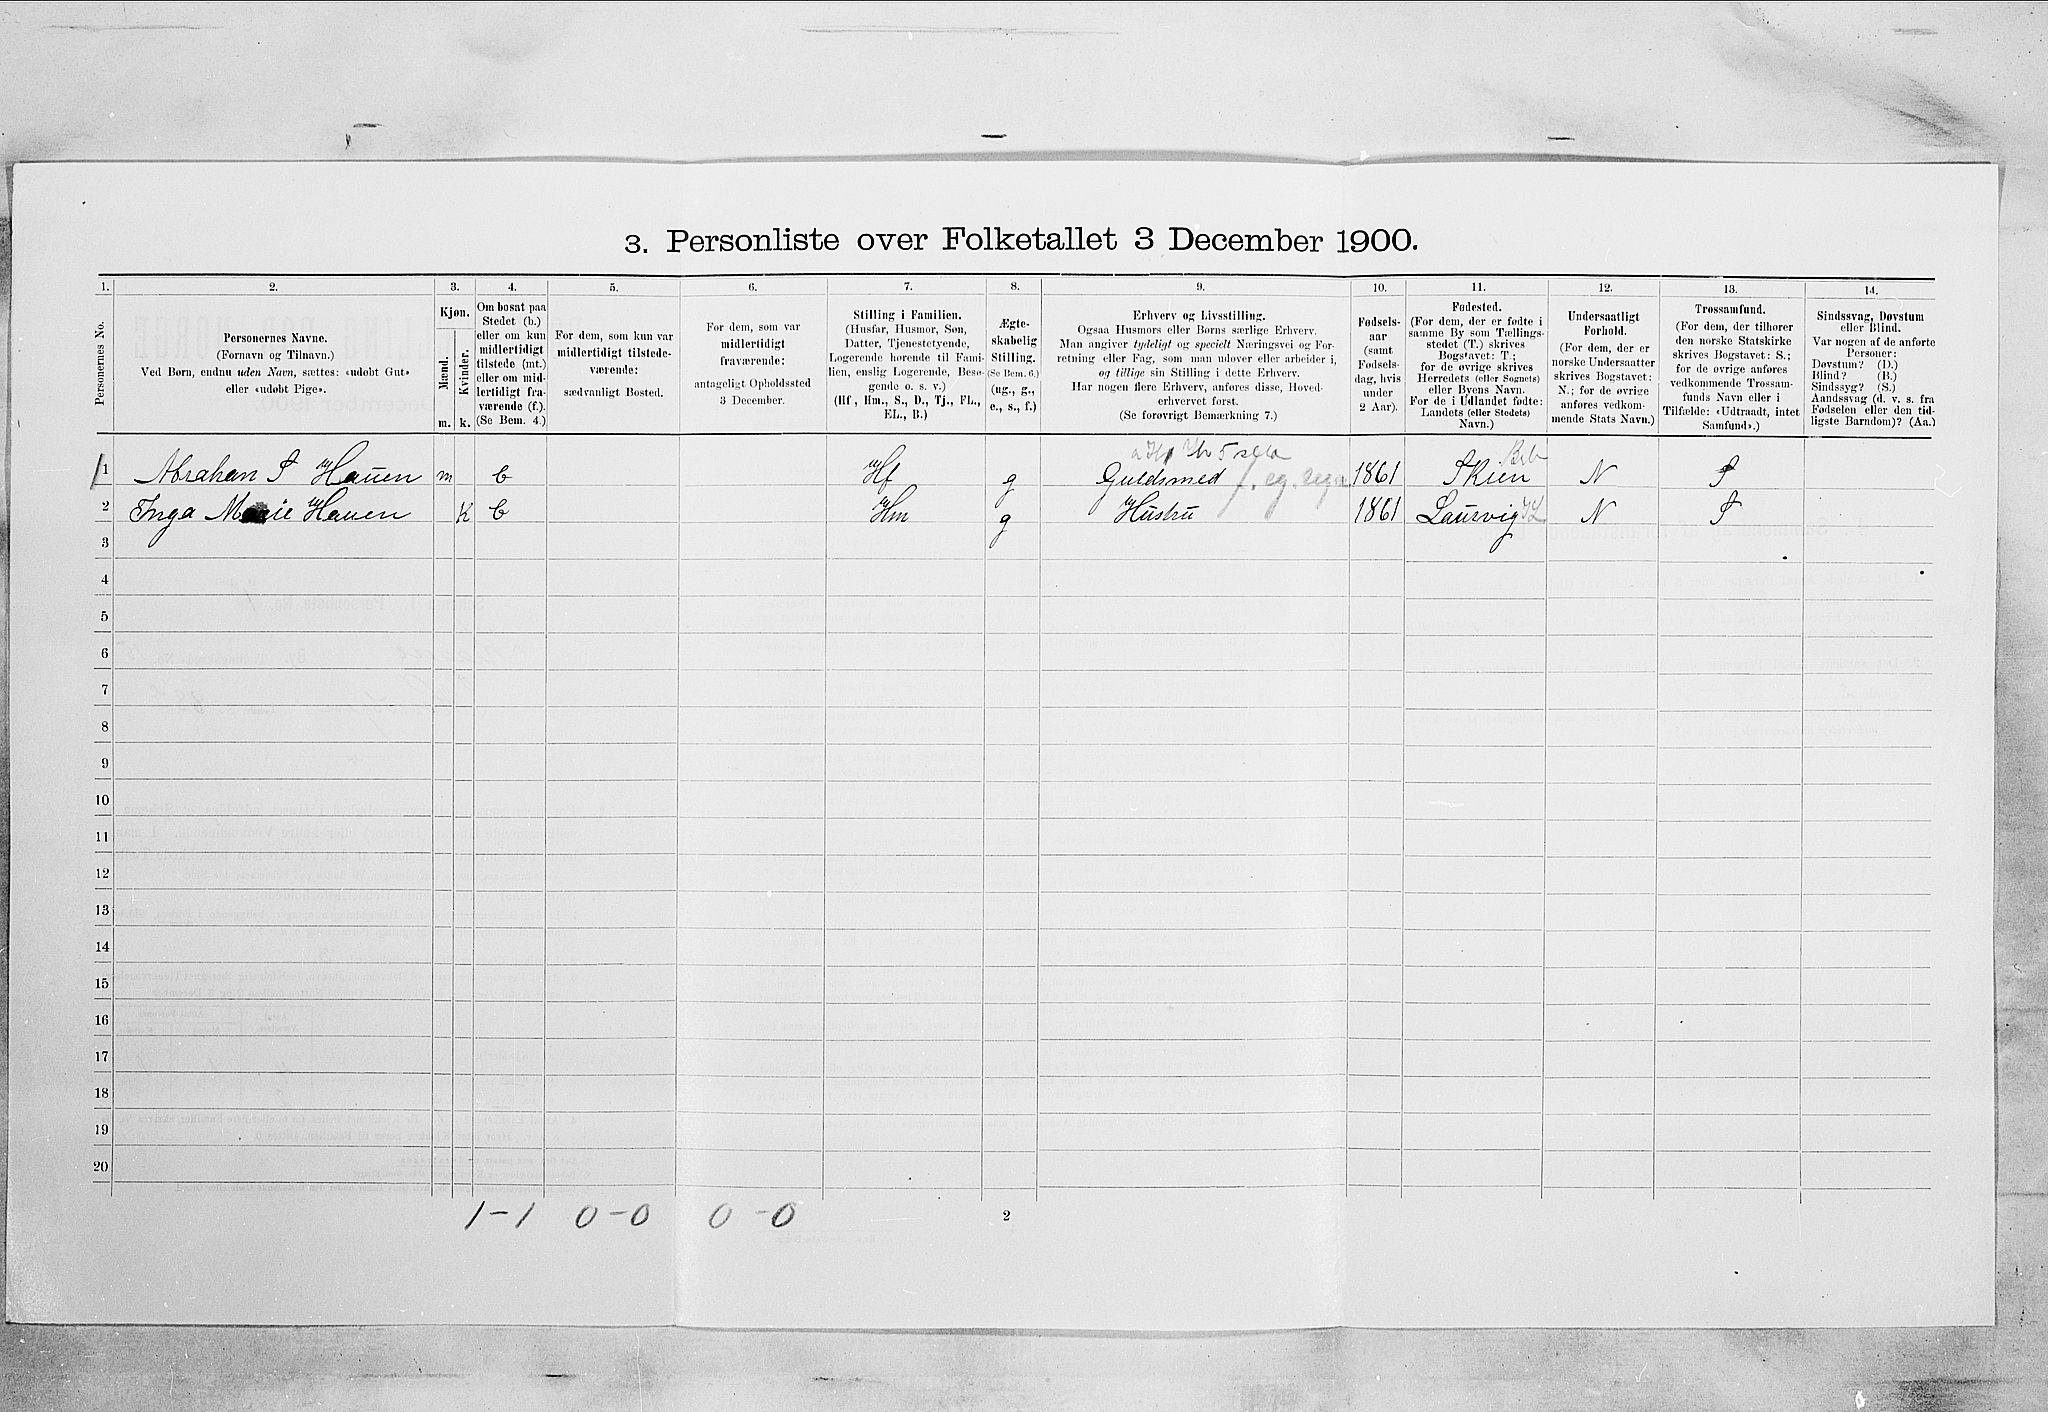 3. Personliste over Folketallet 3 December 1900.
1. 2. 3. 4. 5. 6. 7. 8. 9. 10. 11. 12. 13. 14.
Personernes No.
Personernes Navne.
(Fornavn og Tilnavn.)
Ved Børn, endnu uden Navn, sættes: «udøbt Gut»
eller «udøbt Pige».
Kjøn.
Mænd.
Kvinder.
m. k.
Om bosat paa
Stedet (b.)
eller om kun
midlertidigt
tilstede (mt.)
eller om mid-
lertidigt fra-
værende (f.).
(Se Bem. 4.)
For dem, som kun var
midlertidigt tilstede-
værende:
sædvanligt Bosted.
For dem, som var
midlertidigt
fraværende:
antageligt Opholdssted
3 December.
Stilling i Familien.
(Husfar, Husmor, Søn,
Datter, Tjenestetyende,
Logerende hørende til Fami-
lien, enslig Logerende, Besø-
gende o. s. v.)
(Hf., Hm., S., D., Tj., FL.,
EL., B.)
Ægte-
skabelig
Stilling.
(Se Bem. 6.)
(ug., g.,
e., s., f.)
Erhverv og Livsstilling.
Ogsaa Husmors eller Børns særlige Erhverv.
Man angiver tydeligt og specielt Næringsvei og For-
retning eller Fag, som man udover eller arbeider i,
og tillige sin Stilling i dette Erhverv.
Har nogen flere Erhverv, anføres disse, Hoved-
erhvervet først.
(Se forøvrigt Bemærkning 7.)
Fødsels-
aar
(samt
Fødsels-
dag, hvis
under
2 Aar).
Fødested.
(For dem, der er fødte i
samme By som Tællings-
stedet (T.) skrives
Bogstavet: T.;
for de øvrige skrives
Herredets (eller Sognets)
eller Byens Navn.
For de i Udlandet fødte:
Landets (eller Stedets)
Navn.)
Undersaatligt
Forhold.
(For dem, der er
norske Undersaatter
skrives Bogstavet:
N.; for de øvrige
anføres vedkom-
mende Stats Navn.)
Trossamfund.
(For dem, der tilhører
den norske Statskirke
skrives Bogstavet: S.;
for de øvrige anføres
vedkommende Trossam-
funds Navn eller i
Tilfælde: «Udtraadt, intet
Samfund».)
Sindssvag, Døvstum
eller Blind.
Var nogen af de anførte
Personer:
Døvstum? (D.)
Blind? (B.)
Sindssyg? (S.)
Aandssvag (d. v. s. fra
Fødselen eller den tid-
ligste Barndom)? (Aa.)
1 Abrahan S Hauen m b Hf g Guldsmed 1861 Skien N S
2 Inga Marie Hauen K b Hm g Hustru 1861 Laurvig N S
3
4
5
6
7
8
9
10
11
12
13
14
15
16
17
18
19
20
1-1 0-0 0-0 2